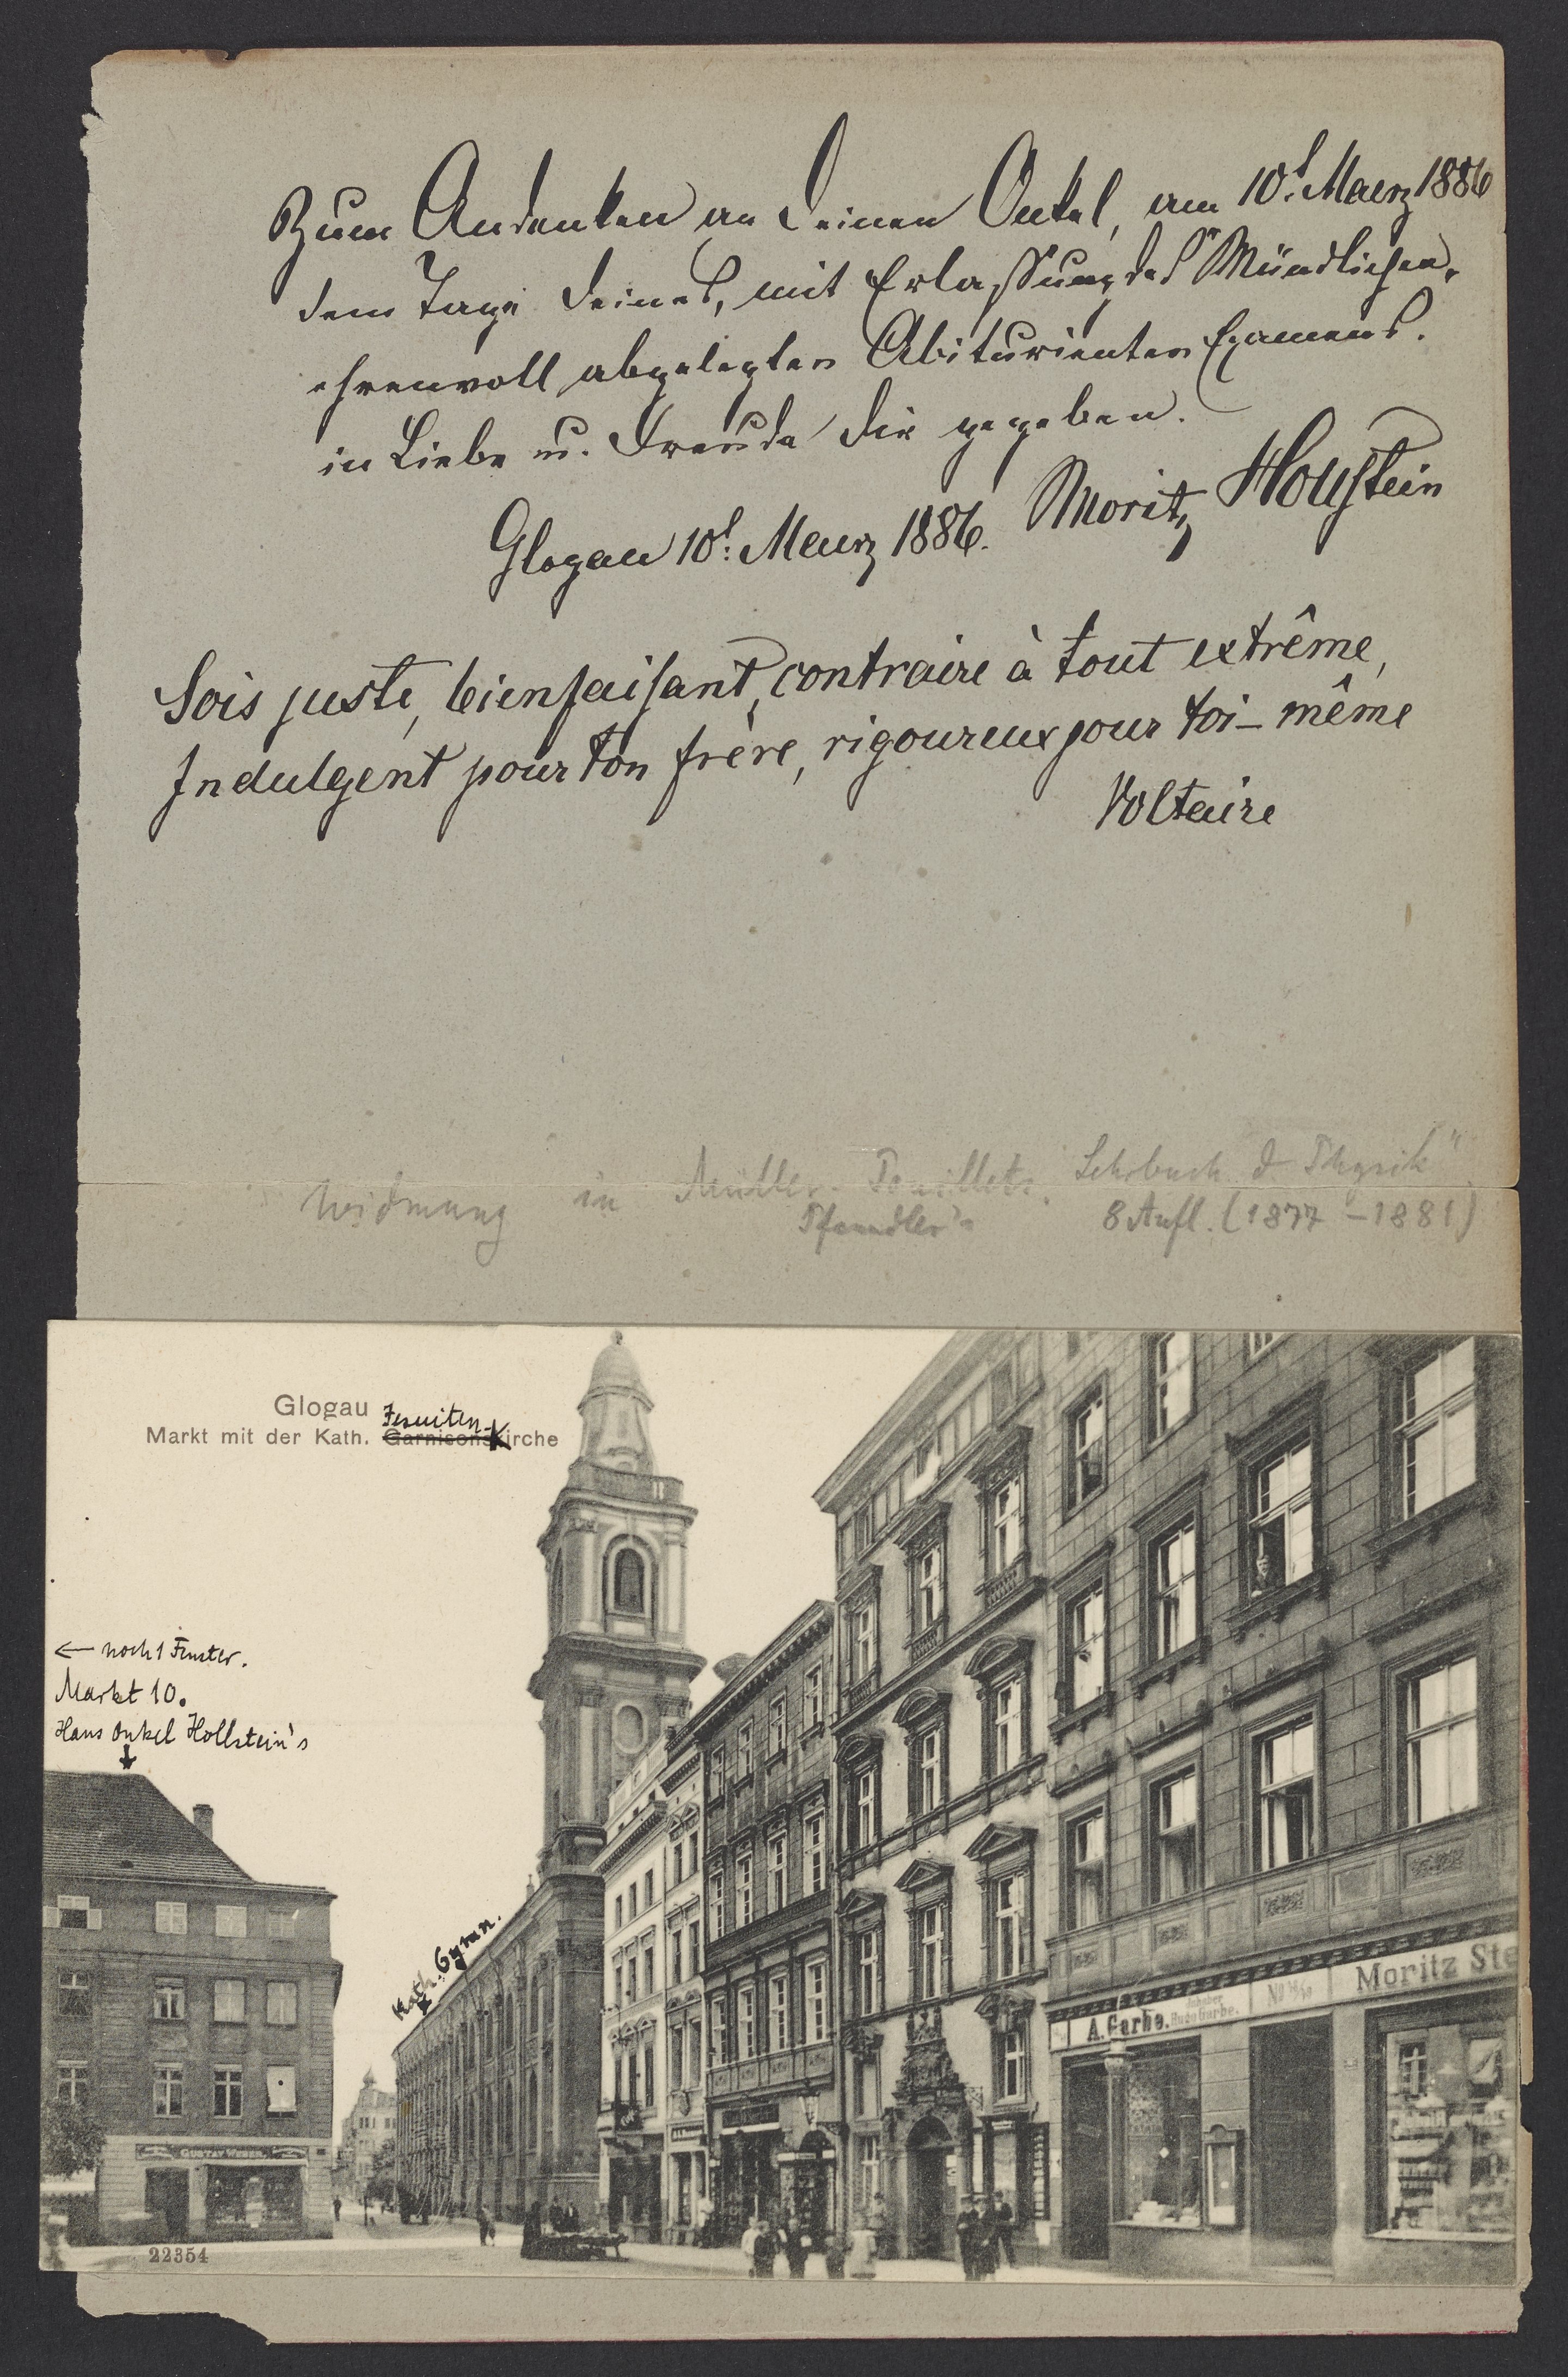 Zum Andenken an Deinen Onkel, am 10t. Maerz 1886
dem Tage Deines, mit Erlassung des Mündlichen,
ehrenvoll abgelegten Abiturienten Examens.
in Liebe u. Freude Dir gegeben.
Moritz Hollstein
Glogau 10t. Maerz 1886.
Sois juste, bienfaisant, contraire à tout extrême,
Indulgent pour ton frère, rigoureux pour toi-même
Voltaire
Widmung in Müller-Pouillets "Lehrbuch d Physik"
Pfaundler's 8 Aufl. (1877-1881)
Glogau
Jesuiten-K
Markt mit der Kath. Garnisonskirche
← noch 1 Fenster.
Markt 10.
Haus Onkel Hollstein's
Kath. Gymn.
Moritz Ste
A. Garbe.
GUSTAV WEBER.
22354